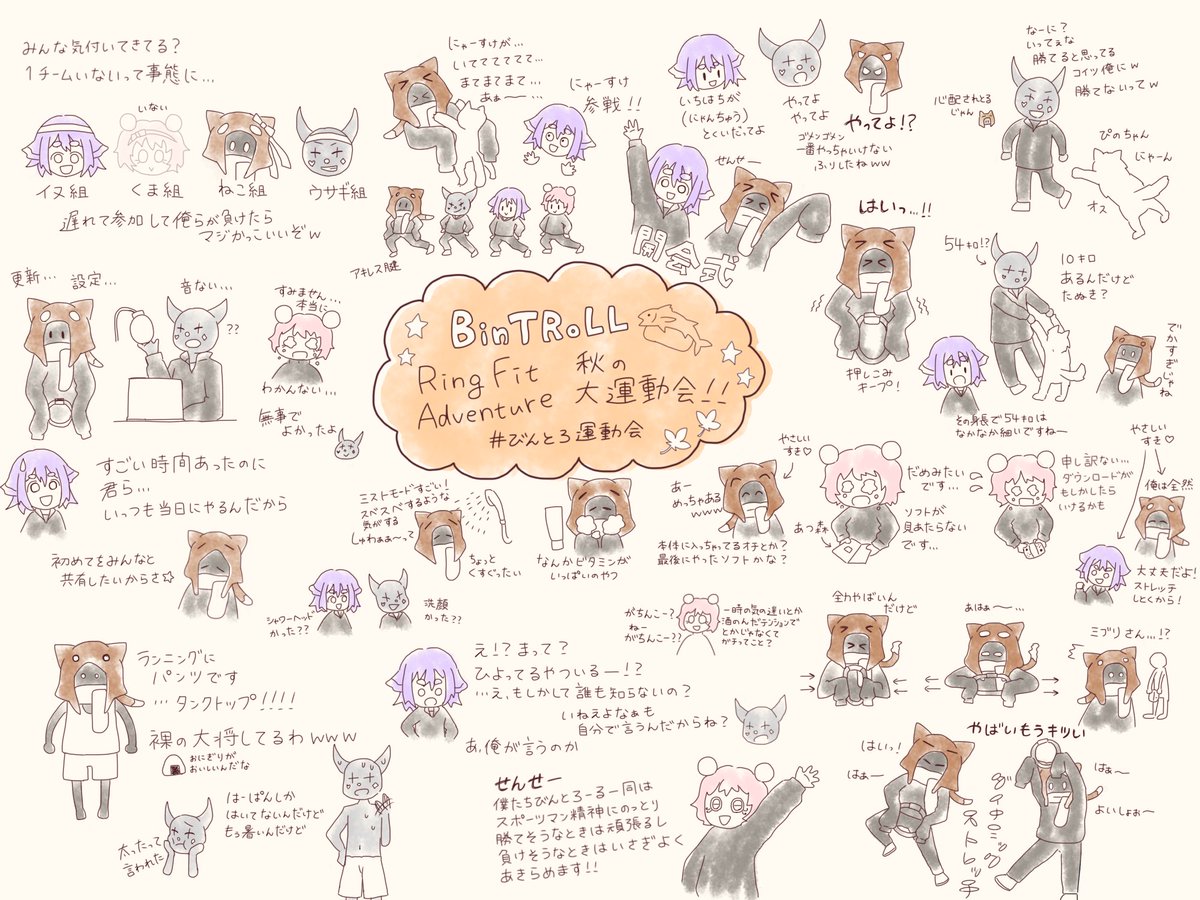 みんな気付いてきてる?
1チームいないって事態に...
いない
イヌ組
くま組
ねこ組
ウサギ組
遅れて参加して俺らが負けたら
マジかっこいいぞw
にゃーすけが...
いててててて...
まてまてまて...
あぁ〜...
にゃーすけ
参戦!!
アキレス腱
いちはちが
(にゃんちゅう)
とくいだってよ
やってよ
やってよ
やってよ!?
ゴメンゴメン
一番やっちゃいけない
ふりしたねww
せんせー
開会式
なーに?
いってぇな
勝てると思ってる
コイツ俺にw
勝てないってw
心配されとる
じゃん
ぴのちゃん
にゃーん
オス
はいっ...!!
押しこみ
キープ!
54キロ!?
10キロ
あるんだけど
たぬき?
でかすぎじゃね
その身長で54キロは
なかなか細いですねー
更新...
設定...
音ない...
??
すみません...
本当に
わかんない...
無事で
よかったよ
BinTRoLL
Ring Fit
Adventure
秋の
大運動会!!
#びんとろ運動会
すごい時間あったのに
君ら...
いっつも当日にやるんだから
初めてをみんなと
共有したいからさ☆
ミストモードすごい!
スベスベするような
気がする
しゅわぁぁ〜って
ちょっと
くすぐったい
なんかビタミンが
いっぱいのやつ
シャワーヘッド
かった??
洗顔
かった??
あー
めっちゃある
www
やさしい
すき♡
本体に入っちゃってるオチとか?
最後にやったソフトかな?
あつ森
だめみたい
です...
ソフトが
見あたらない
です...
申し訳ない...
ダウンロードが
もしかしたら
いけるかも
やさしい
すき♡
俺は全然
大丈夫だよ!
ストレッチ
しとくから!
ランニングに
パンツです
...タンクトップ!!!!
裸の大将してるわwww
おにぎりが
おいしいんだな
はーぱんしか
はいてないんだけど
もう暑いんだけど
太ったって
言われた
がちんこー?
ねー
がちんこー??
一時の気の迷いとか
酒のんだテンションで
とかじゃなくて
がチってこと?
え!?まって?
ひよってるやついるー!?
...え、もしかして誰も知らないの?
いねえよなぁも
自分で言うんだからね?
あ,俺が言うのか
せんせー
僕たちびんとろーる一同は
スポーツマン精神にのっとり
勝てそうなときは頑張るし
負けそうなときはいさぎよく
あきらめます!!
全力やばいん
だけど
あはぁ〜...
ミブリさん...!?
やばいもうキツい
はいっ!
はぁ〜
はぁ〜
よいしょぉ〜
ダイナミックストレッチ